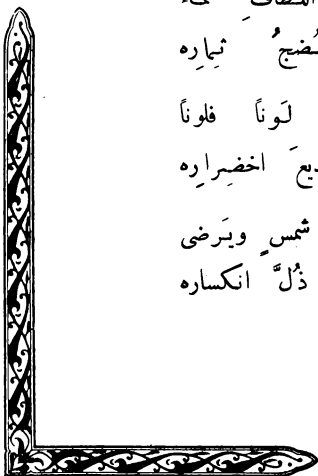 نُضجُ ثمارِه
لَوناً فلوناً
اخضِرارِه
شمسٍ ويَرضى
ذُلَّ انكساره